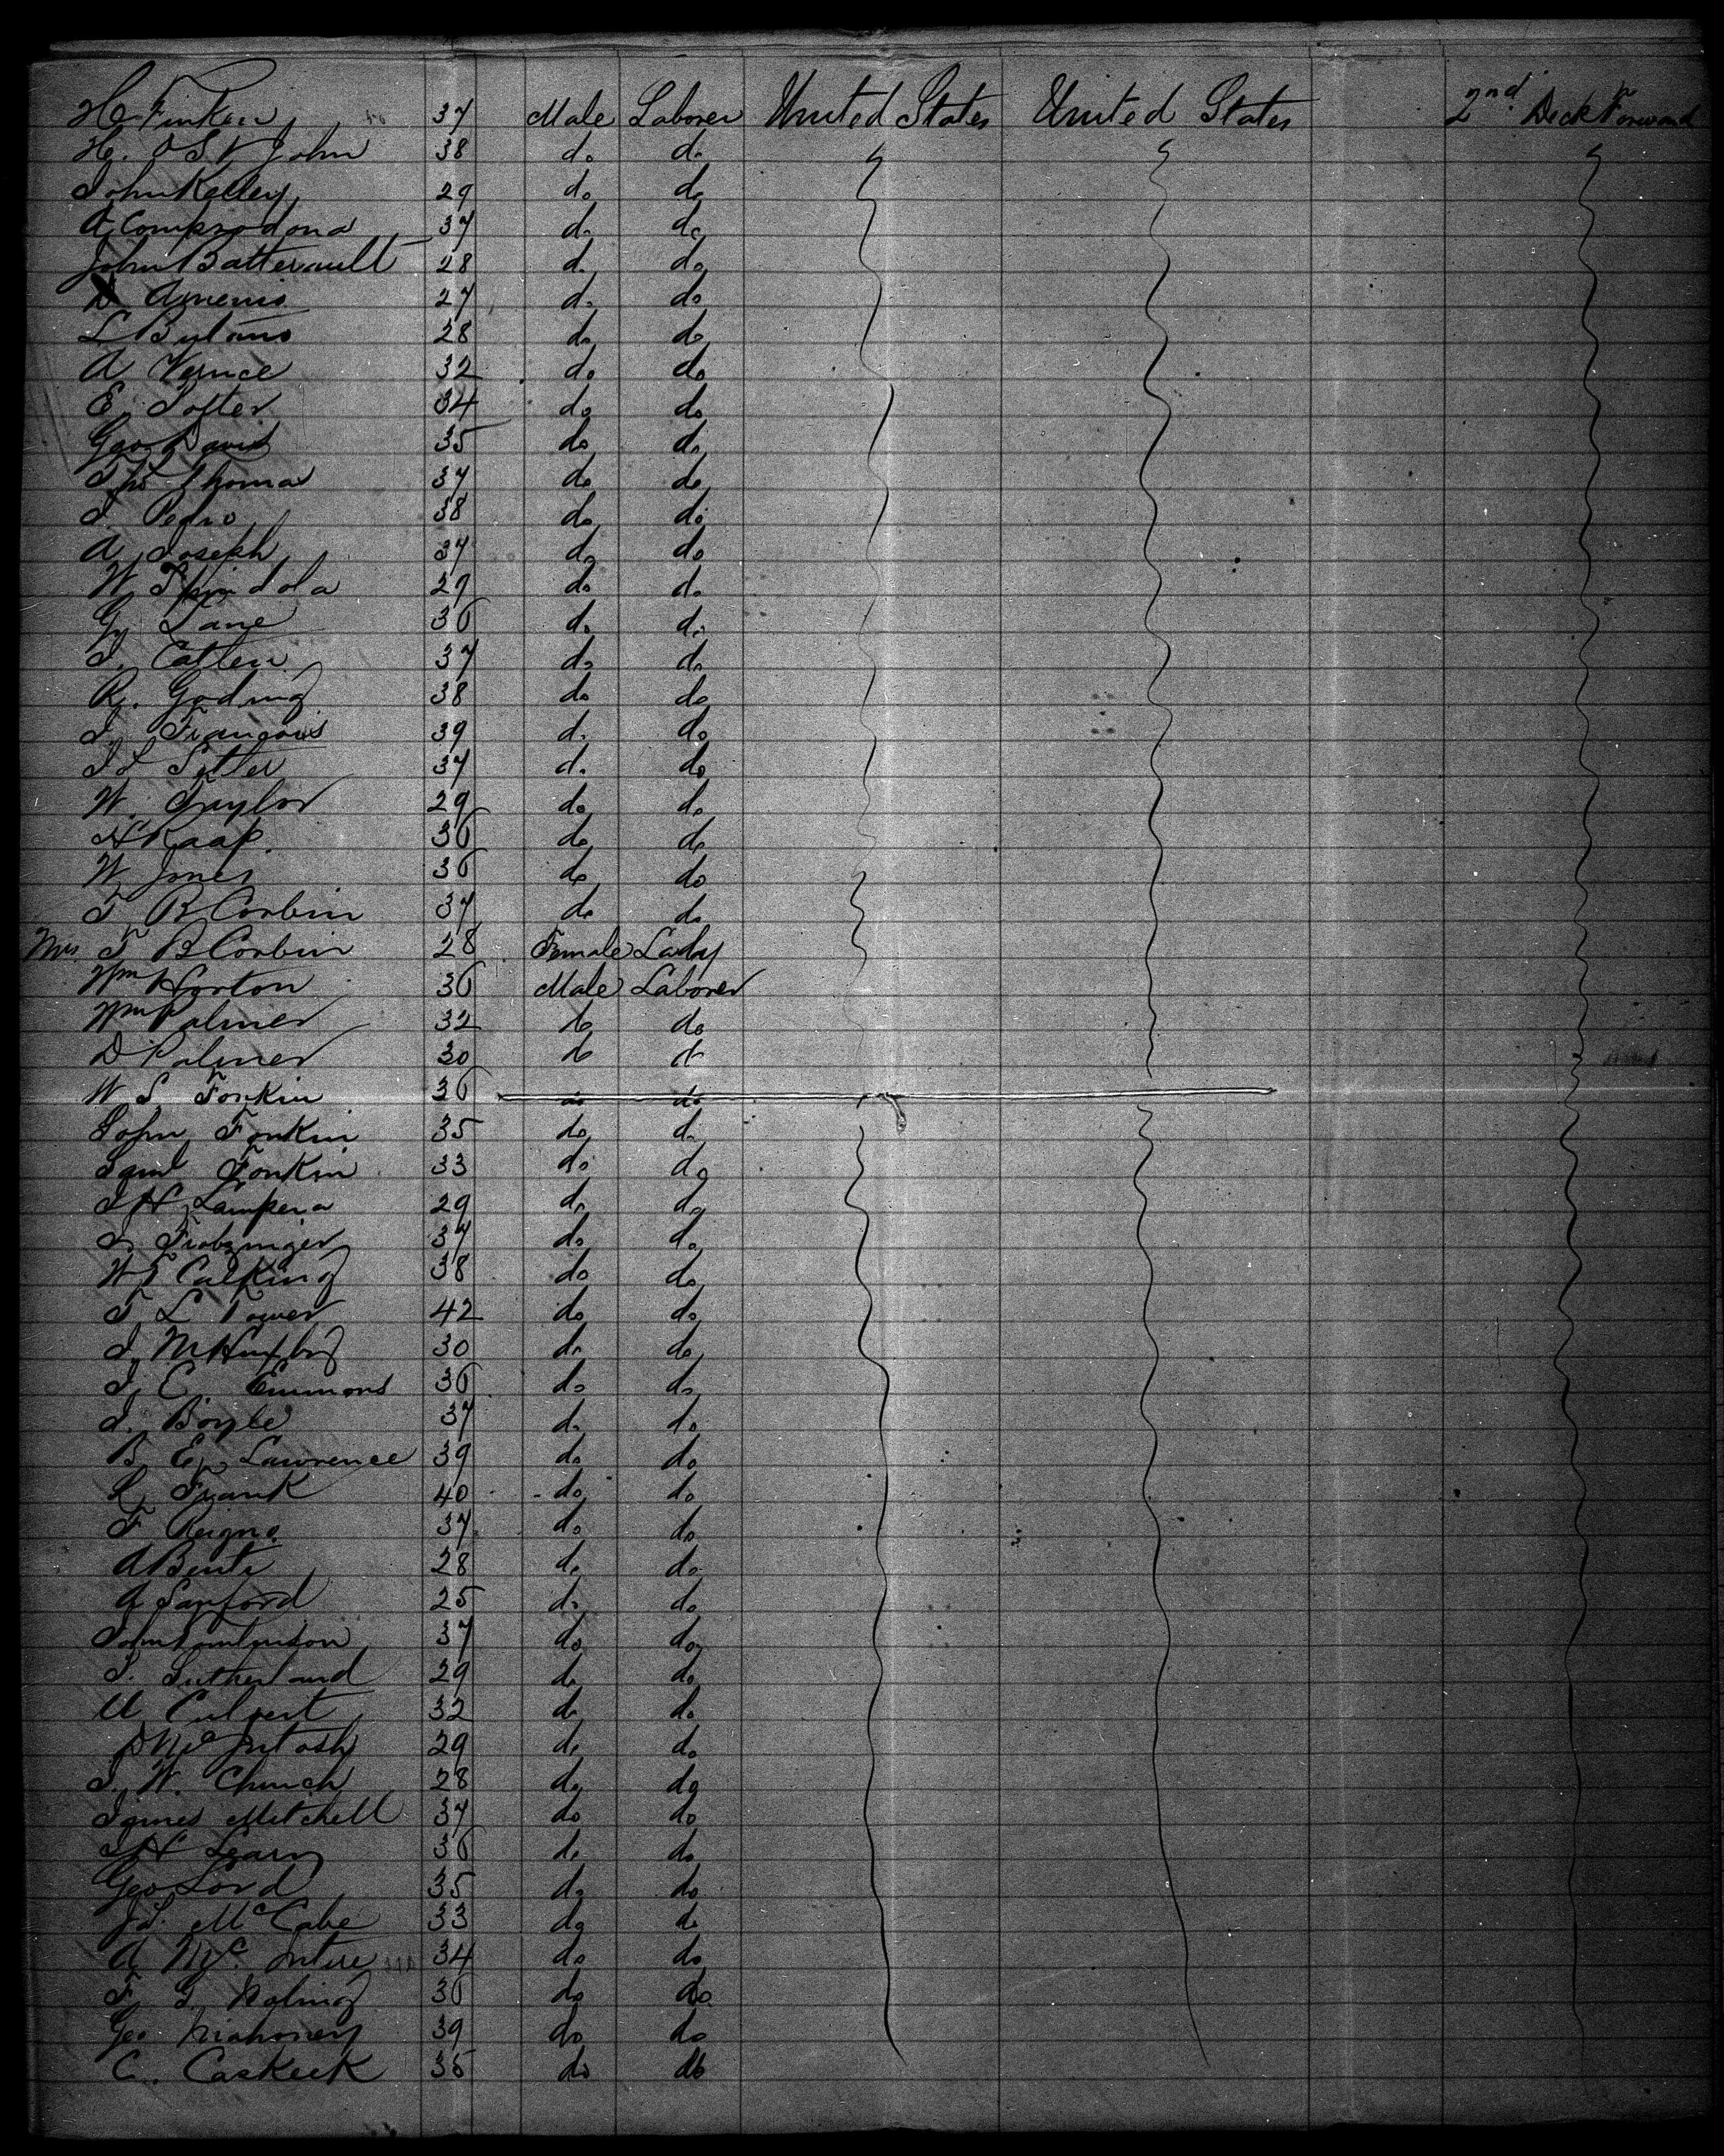 H Finken 37 Male Laborer United States United States 2nd Deck Forward
H. St John 38 do do
John Kelley 29 do do
A 37 do do
John Batterault 28 do do
Amenis 27 do do
L 28 do do
A Vernce 32 do do
E. 34 do do
Geo Davis 35 do do
Thoma 37 do do
J. Pedro 38 do do
A Joseph 37 do do
W 29 do do
Gy Lane 36 do do
J. Catlen 37 do do
R. Goding 38 do do
J. Francois 39 do do
37 do do
W. Taylor 29 do do
H Raap. 36 do do
W Jones 36 do do
T B Corbin 37 do do
Mrs. T B Corbin 28 Female Lady
Wm Horton 36 Male Laborer
Wm Palmer 32 do do
D Palmer 30 do do
W S Tonkin 36 do do
John Tonkin 35 do do
Saml Tonkin 33 do do
J H Lampera 29 do do
37 do do
W T Calking 38 do do
T L Tower 42 do do
J. 30 do do
J. C. Emmons 36 do do
J. Boyle 37 do do
B E Lawrence 39 do do
L Frank 40 do do
F Reigno 37 do do
A Bente 28 do do
A Sanford 25 do do
John Tomlinson 37 do do
S. Sutherland 29 do do
A Culpert 32 do do
McIntosh 29 do do
J. W. Church 28 do do
James Mitchell 37 do do
J H Leary 36 do do
Geo Lord 35 do do
McCabe 33 do do
A McIntire 34 do do
F G. 36 do do
Geo Mahoney 39 do do
C. Caskeek 35 do do